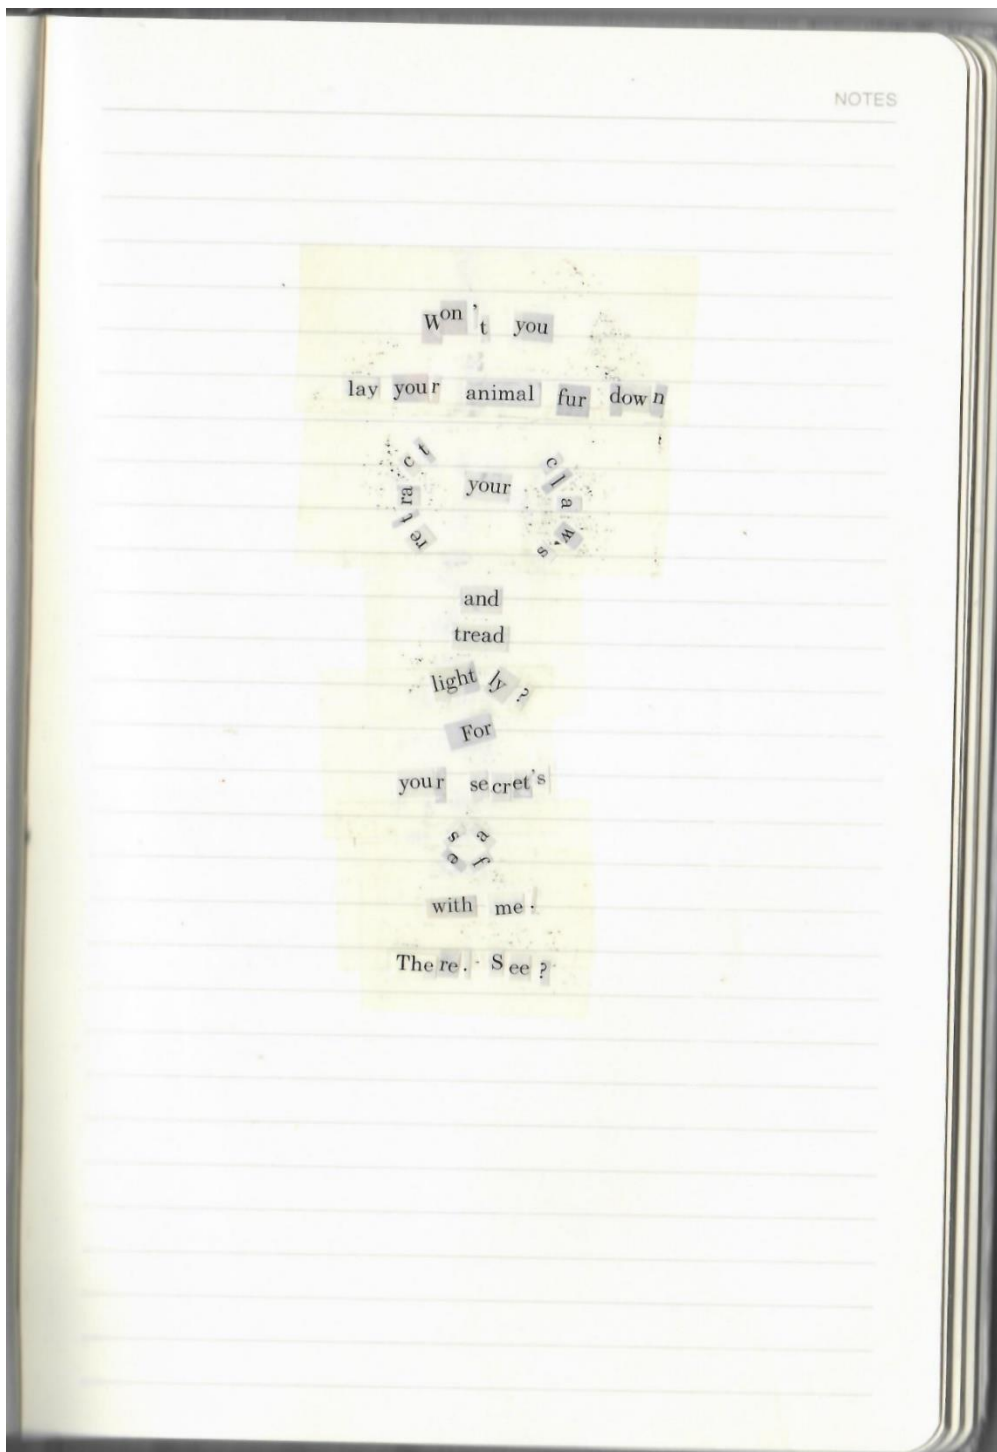 NOTES
Won't you
lay your animal fur down
retract your claws,
and
tread
lightly?
For
your secret's
safe
with me.
There. See?